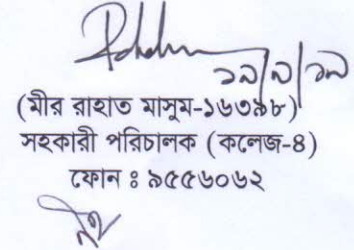 ১৯/৯/১৯
(মীর রাহাত মাসুম-১৬৩৯৮)
সহকারী পরিচালক (কলেজ-৪)
ফোন ঃ ৯৫৫৬০৬২